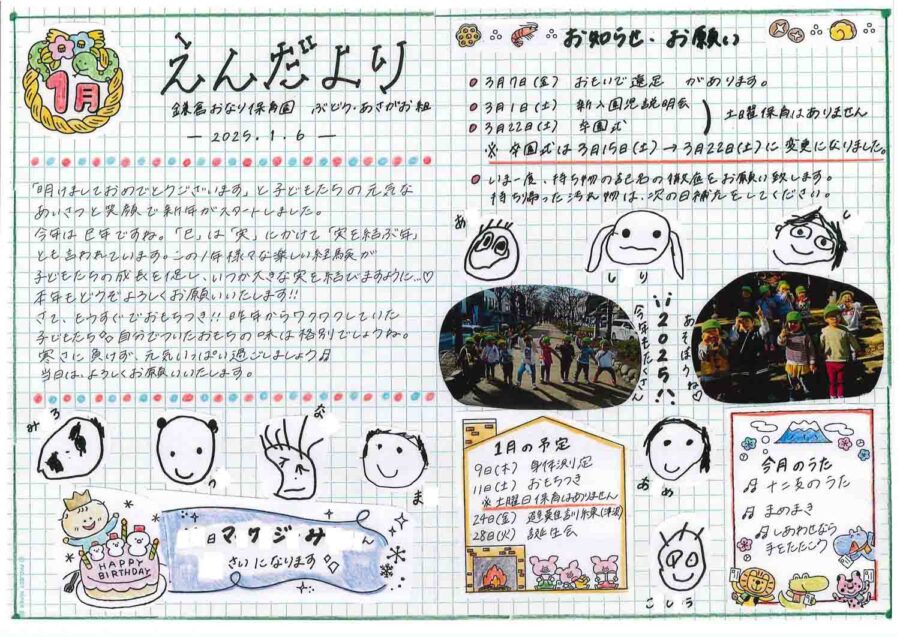 1月
えんだより
鎌倉おなり保育園 ぶどう・あさがお組
— 2025.1.6 —
「明けましておめでとうございます」と子どもたちの元気な
あいさつと笑顔で新年がスタートしました。
今年は巳年ですね。「巳」は「実」にかけて「実を結ぶ年」
とも言われています。この1年様々な楽しい経験が
子どもたちの成長を促し、いつか大きな実を結びますように…♡
本年もどうぞよろしくお願いいたします!!
さて、もうすぐおもちつき!! 昨年からワクワクしていた
子どもたち。自分でついたおもちの味は格別でしょうね。
寒さに負けず、元気いっぱい過ごしましょう♫
当日は、よろしくお願いいたします。
みろ
つ
な
ま
HAPPY
BIRTHDAY
日 マ・ケ ジ・み ん
さいになります
お知らせ・お願い
3月7日(金) おもいで遠足 があります。
3月1日(土) 新入園児説明会
3月22日(土) 卒園式
土曜保育はありません
※ 卒園式は3月15日(土)→3月22日(土)に変更になりました。
いま一度、持ち物の記名の徹底をお願い致します。
持ち帰った汚れ物は、次の日補充をしてください。
あ
しり
し
2025!!
今年もたくさん
あそぼうね♡
1月の予定
9日(木) 身体測定
11日(土) おもちつき
※土曜日保育はありません
24日(金) 避難訓練(津波)
28日(火) 誕生会
あめ
こしう
今月のうた
♫ 十二支のうた
♫ まめまき
♫ しあわせなら
手をたたこう